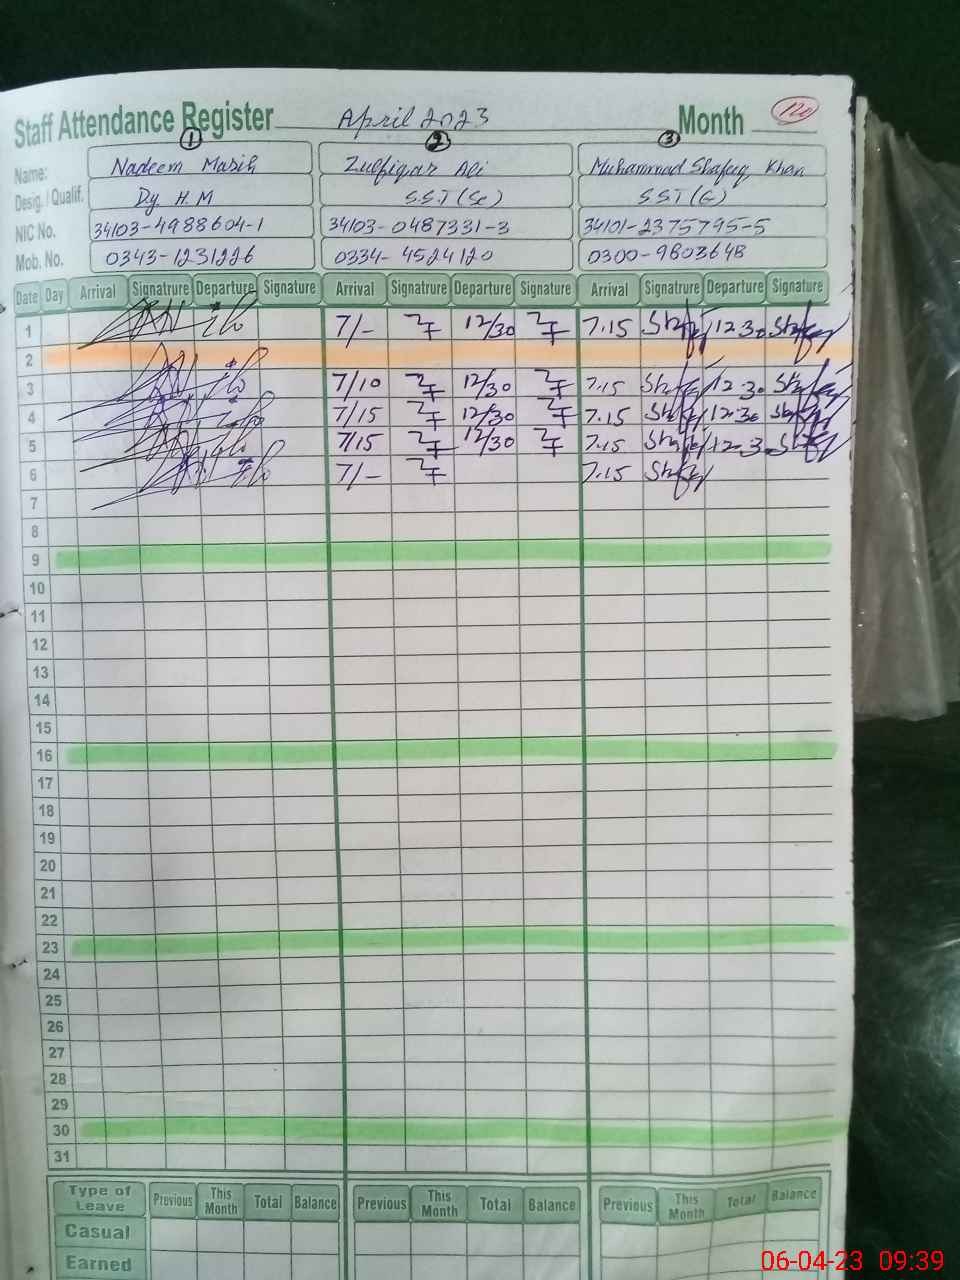 Staff Attendance Register April 2023 Month 120
1 2 3
Name: Nadeem Masih Zulfiqar Ali Muhammad Shafeeq Khan
Desig. / Qualif. Dy H.M S.S.T (Sc) S.S.T (G)
NIC No. 34103-4988604-1 34103-0487331-3 34101-2375795-5
Mob. No. 0343-1231226 0334-4524120 0300-9803648
Date Day Arrival Signatrure Departure Signature Arrival Signatrure Departure Signature Arrival Signatrure Departure Signature
1 7/- 12/30 7.15 Shafeq 12.30 Shafeq
2
3 7/10 12/30 7.15 Shafeq 12.30 Shafeq
4 7/15 12/30 7.15 Shafeq 12.30 Shafeq
5 7/15 12/30 7.15 Shafeq 12.3 Shafeq
6 7/- 7.15 Shafeq
7
8
9
10
11
12
13
14
15
16
17
18
19
20
21
22
23
24
25
26
27
28
29
30
31
Type of Leave Previous This Month Total Balance Previous This Month Total Balance Previous This Month Total Balance
Casual
Earned
06-04-23 09:39